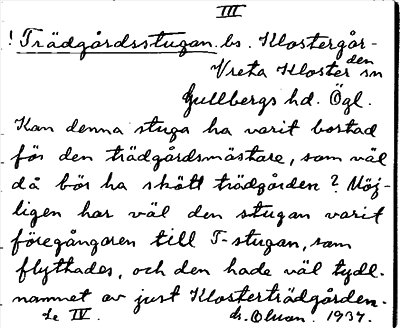 III
! Trädgårdsstugan. bs. Klostergår-
den
Vreta Kloster sn
Gullbergs hd. Ögl.
Kan denna stuga ha varit bostad
för den trädgårdsmästare, som väl
då bör ha skött trädgården? Möj-
ligen har väl den stugan varit
föregångaren till T-stugan, som
flyttades, och den hade väl tydl.
namnet av just Klosterträdgården.
Se IV. Olson. 1937.